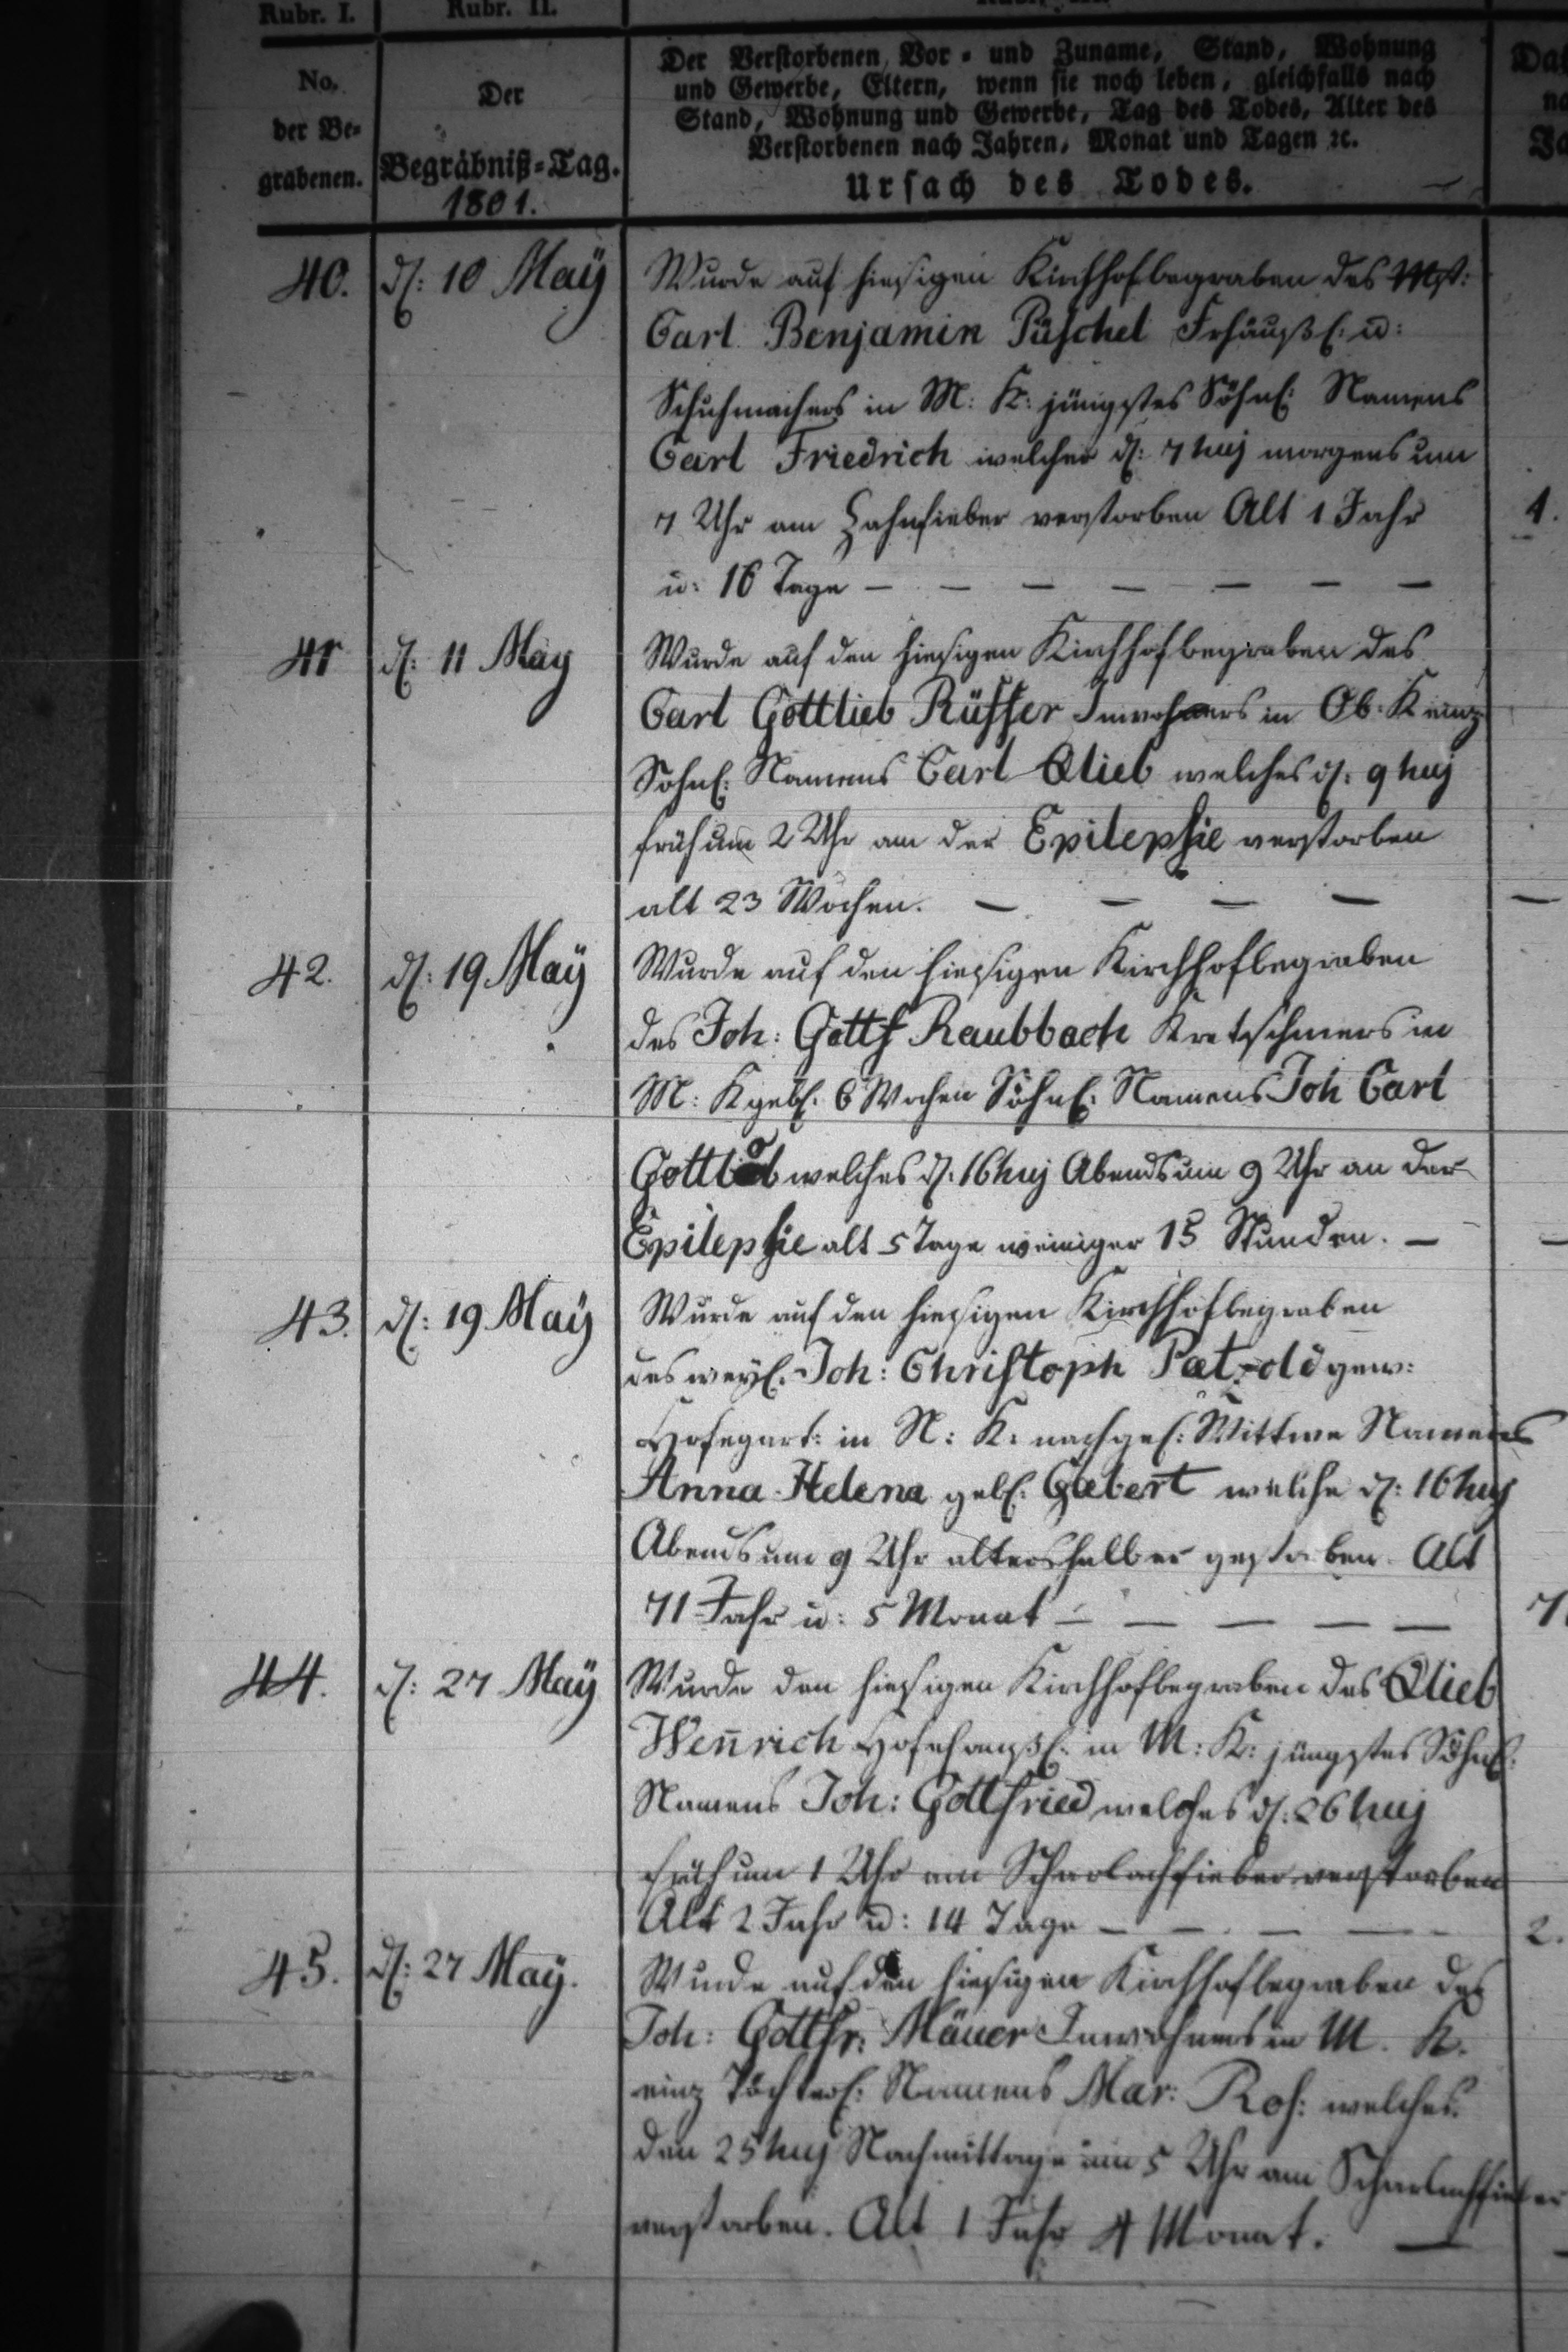 Rubr. I.
Rubr. II.
No.
der Be=
grabenen.
Der
Begräbniß=Tag.
1801.
Der Verstorbenen Vor = und Zuname, Stand, Wohnung
und Gewerbe, Eltern, wenn sie noch leben, gleichfalls nach
Stand, Wohnung und Gewerbe, Tag des Todes, Alter des
Verstorbenen nach Jahren, Monat und Tagen ꝛc.
Ursach des Todes.
40.
d: 10 Maÿ
Wurde auf hiesigen Kirchhof begraben des Mst:
Carl Benjamin Püschel Frehäußl: u:
Schuhmachers in M: K: jüngstes Söhnl: Namens
Carl Friedrich welcher d: 7 huj morgens um
7 Uhr am Zahnfieber verstorben Alt 1 Jahr
1.
u: 16 Tage — — — — — — —
41
d: 11 May
Wurde auf den hiesigen Kirchhof begraben des
Carl Gottlieb Rüffer Inwohners in Ob: K einz
Sohnl: Namens Carl Glieb welches d: 9 huj
früh um 2 Uhr an der Epilepsie verstorben
alt 23 Wochen. — — — — —
42.
d: 19 Maÿ
Wurde auf den hiesigen Kirchhof begraben
des Joh: Gottf Raubbach Kretschmers in
M: K gebl: 6 Wochen Söhnl: Namens Joh Carl
Gottlob welches d: 16 huj Abends um 9 Uhr an der
Epilepsie alt 5 Tage weniger 15 Stunden. — —
43.
d: 19 Maÿ
Wurde auf den hiesigen Kirchhof begraben
des weyl. Joh: Christoph Pätzold gew:
Hofegart: in N: K: nachgel: Wittwe Namens
Anna Helena gebl: Gebert welche d: 16 huj
Abends um 9 Uhr altershalber gestorben. Alt
71 Jahr u: 5 Monat — — — — —
44.
d: 27 Maÿ
Wurde den hiesigen Kirchhof begraben des Glieb
Wen̄rich Hofehäußl: in M: K: jüngstes Söhnl:
Namens Joh: Gottfried welches d: 26 huj
früh um 1 Uhr am Scharlachfieber verstorben
Alt 2 Jahr u: 14 Tage — — — — —
2.
45.
d: 27 Maÿ.
Wurde auf den hiesigen Kirchhof begraben des
Joh: Gottfr: Mäuer Inwohners in M. K.
einz Töchterl: Namens Mar: Ros: welches
den 25 huj Nachmittage um 5 Uhr am Scharlachfieber
verstorben. Alt 1 Jahr 4 Monat. —